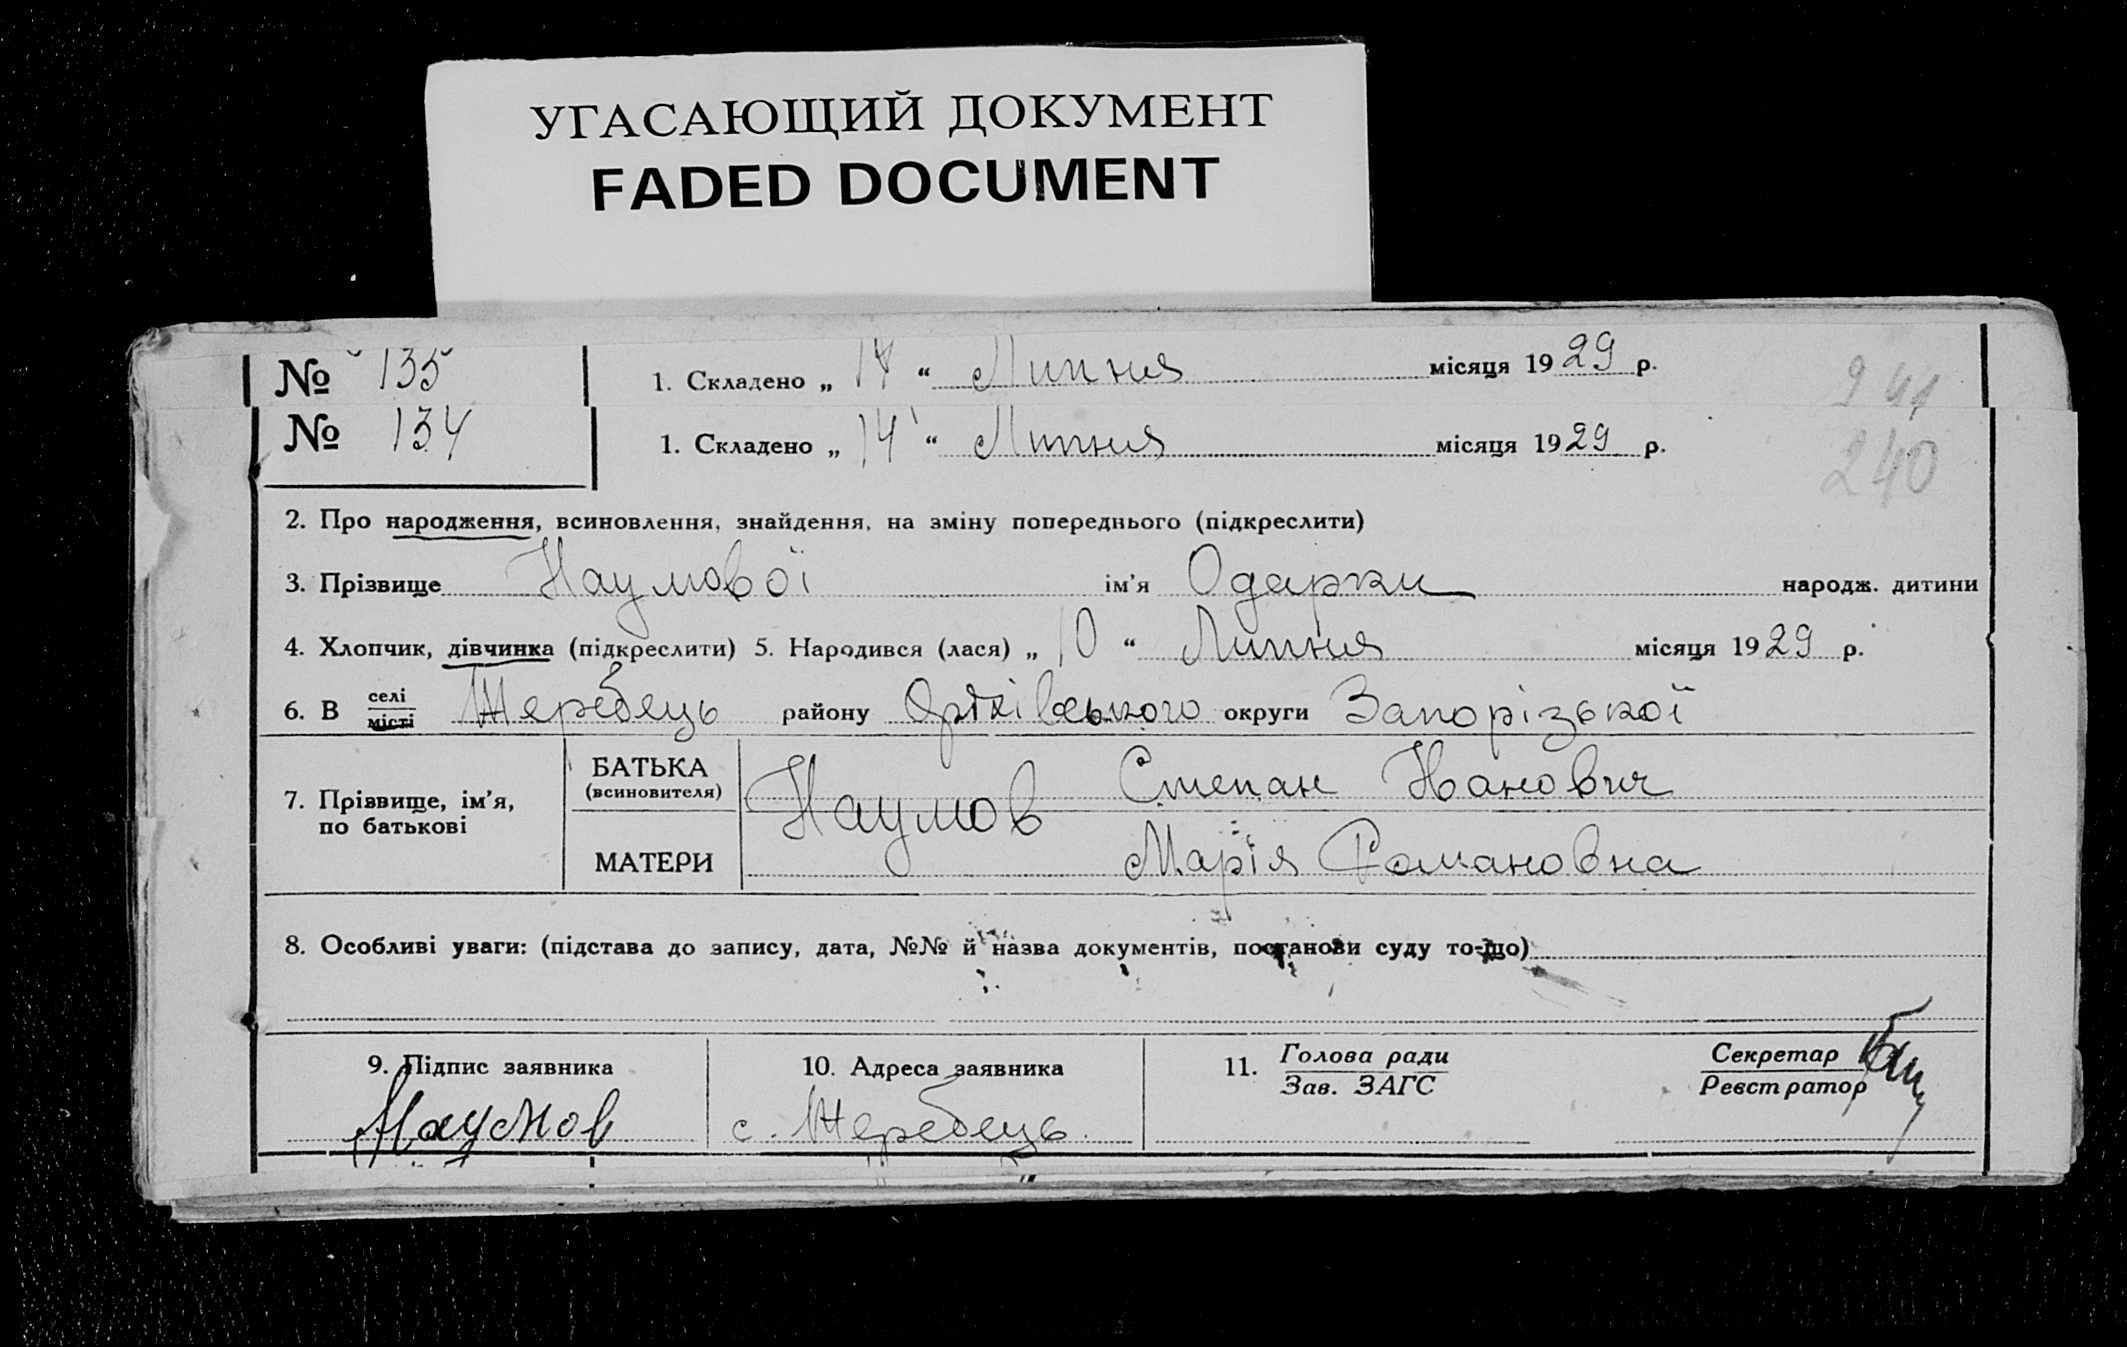 УГАСАЮЩИЙ ДОКУМЕНТ
FADED DOCUMENT
№ 135 1. Складено „ 14 “ Липня місяця 1929 р.
241
№ 134 1. Складено „ 14 “ Липня місяця 1929 р.
240
2. Про народження, всиновлення, знайдення, на зміну попереднього (підкреслити)
3. Прізвище Наумової ім’я Одарки народж. дитини
4. Хлопчик, дівчинка (підкреслити) 5. Народився (лася) „ 10 “ Липня місяця 1929 р.
6. В селі місті Жеребець району Оріхівського округи Запорізької
7. Прізвище, ім’я, по батькові
БАТЬКА (всиновителя) Наумов Степан Іванович
МАТЕРИ Марія Романовна
8. Особливі уваги: (підстава до запису, дата, №№ й назва документів, постанови суду то-що)
9. Підпис заявника 10. Адреса заявника 11. Голова ради Секретар
Зав. ЗАГС Реєстратор
Наумов с. Жеребець